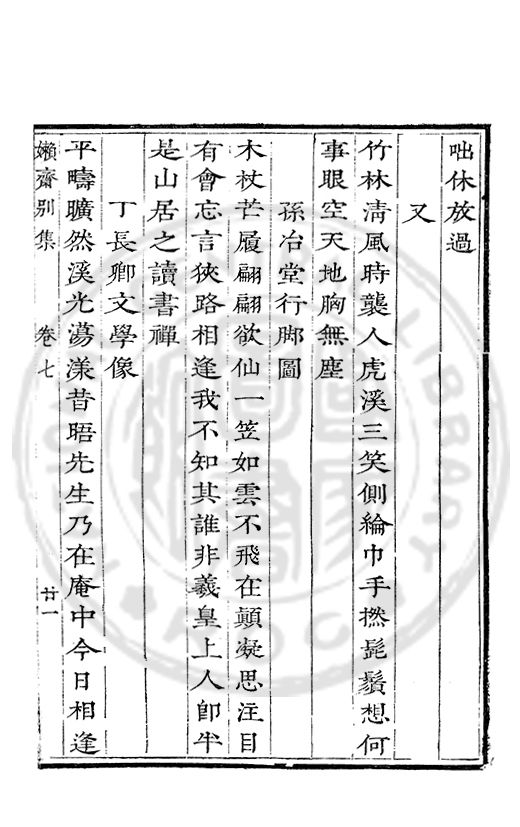 咄休放過
又
竹林淸風時襲人虎溪三笑側綸巾手撚髭鬚想何
事眼空天地胸無塵
孫冶堂行脚圖
木杖芒履翩翩欲仙一笠如雲不飛在顛凝思注目
有會忘言狹路相逢我不知其誰非羲皇上人卽半
是山居之讀書禪
丁長卿文學像
平疇曠然溪光蕩漾昔晤先生乃在庵中今日相逢
嬾齋别集
卷七
廿一